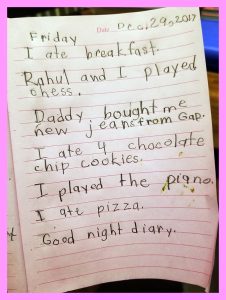 Friday Date Dec. 29, 2017
I ate breakfast.
Rahul and I played
chess.
Daddy bought me
new jeans from Gap.
I ate 4 chocolate
chip cookies.
I played the piano.
I ate pizza.
Good night diary.